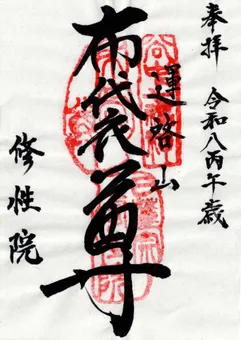 奉拝
令和八丙午歳
運啓山
布袋尊
修性院